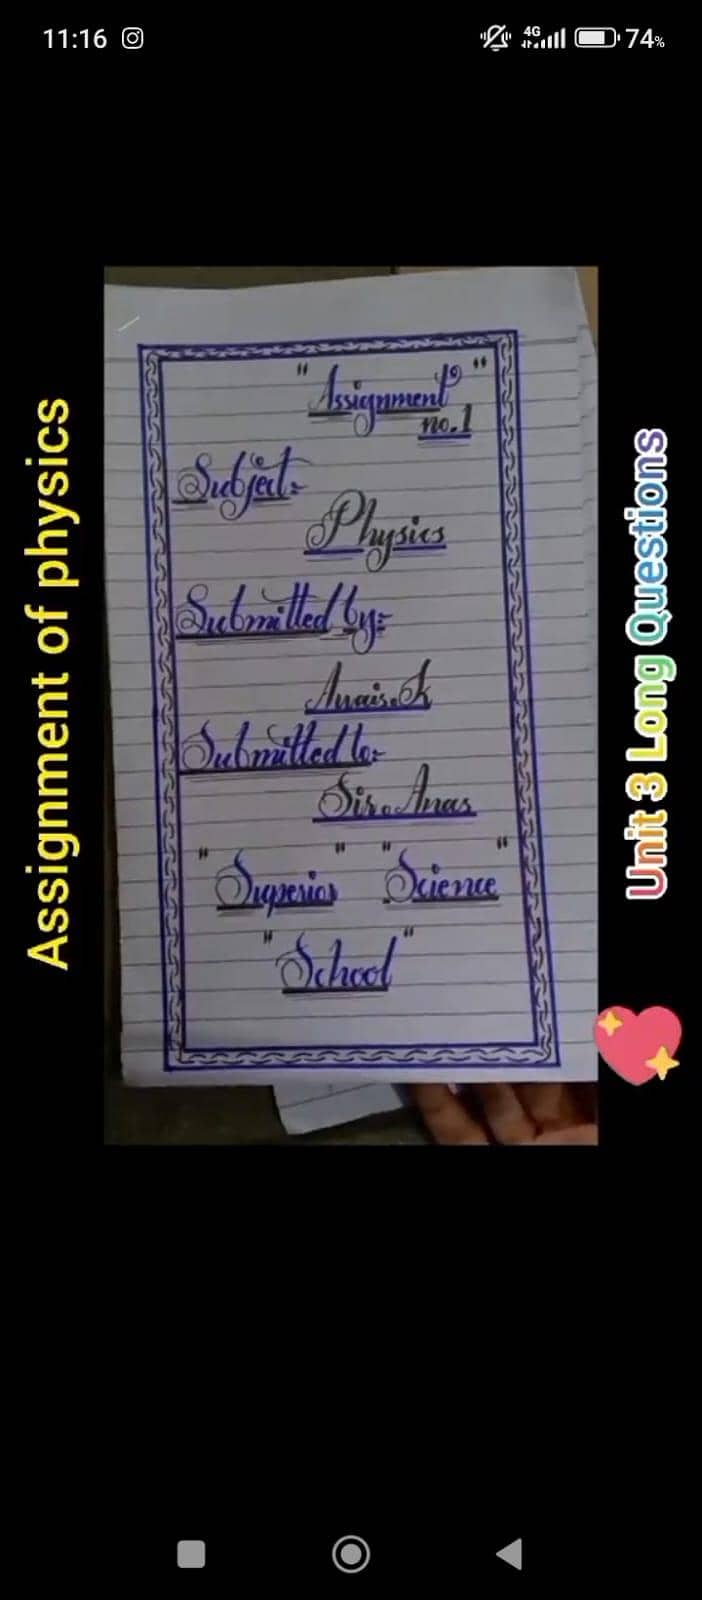 11:16
4G
74%
Assignment of physics
"Assignment"
no.1
Subject:-
Physics
Submitted by:-
Anais.K
Submitted to:-
Sir.Anas
"Superior" "Science"
"School"
Unit 3 Long Questions